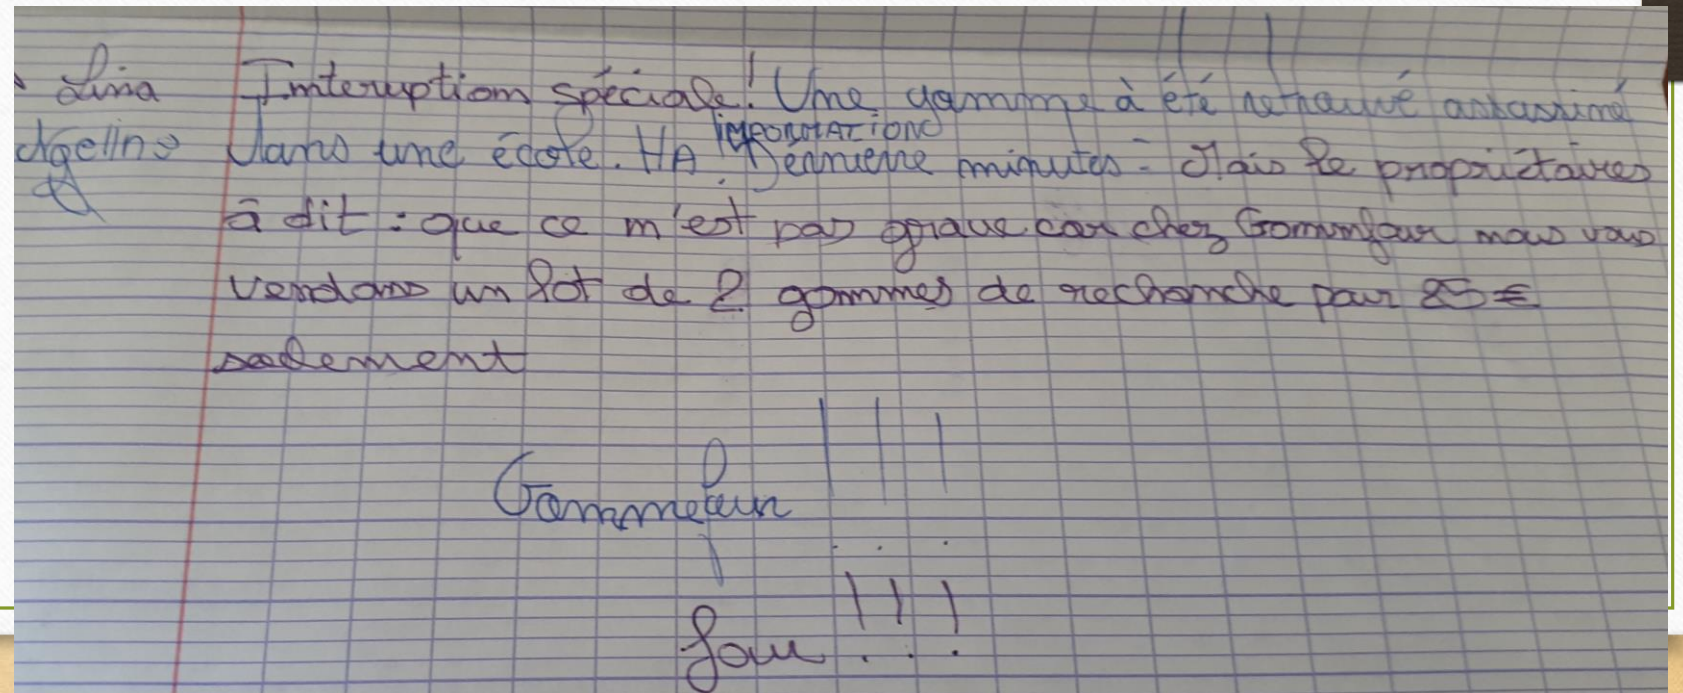 Lina Interuption spéciale! Une gomme à été retrouvé assassiné
INFORMATIONS
dans une école. HA! Dernière minutes - Mais le propriétaires
à dit : que ce n'est pas grave car chez Gommfour nous vous
vendons un lot de 2 gommes de rechanche pour 25 €
seulement
!!!
fou !!!